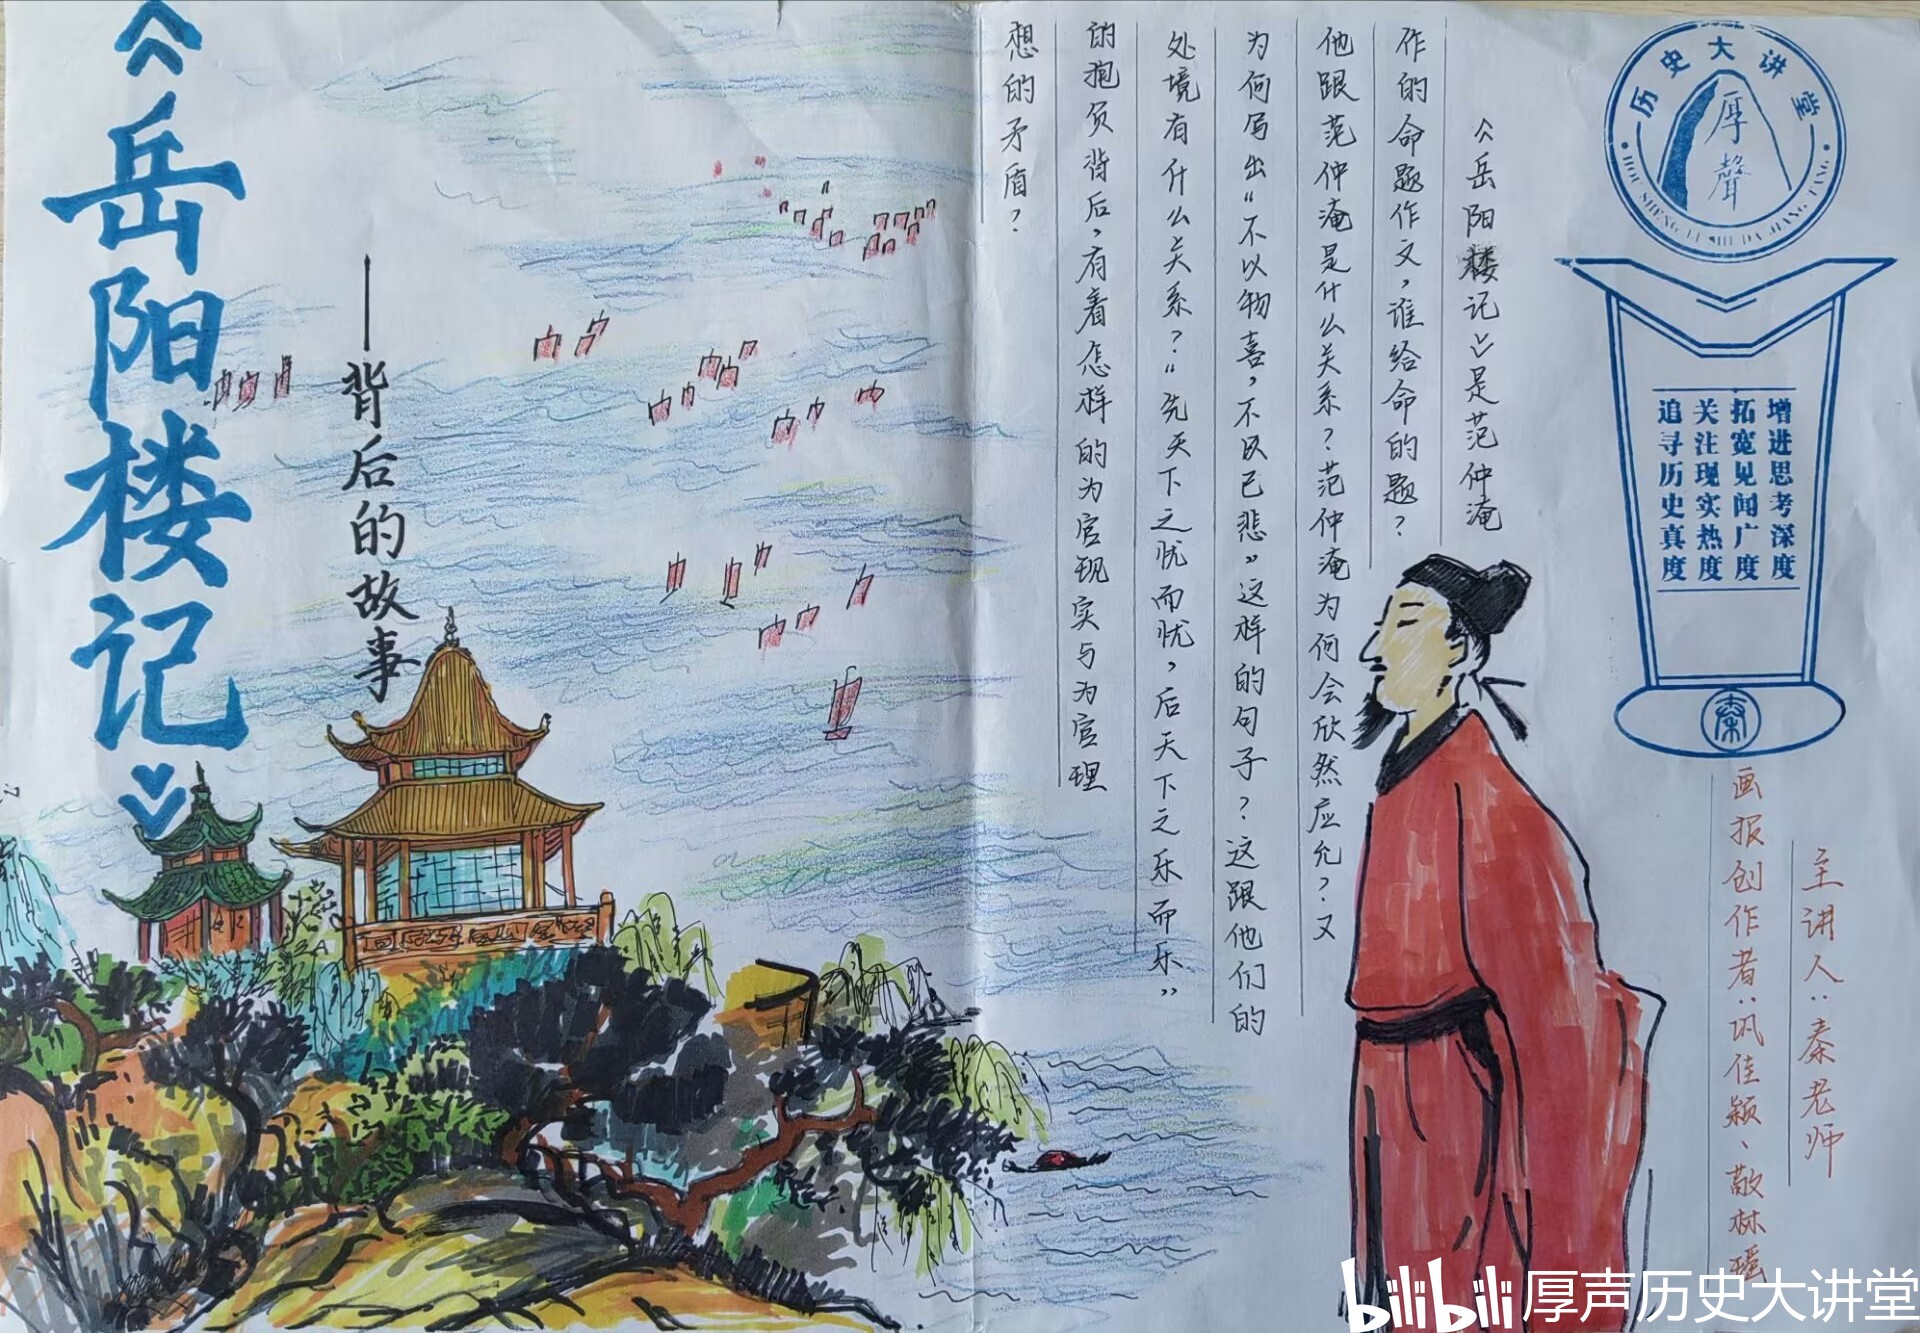 《岳阳楼记》
——背后的故事
《岳阳楼记》是范仲淹
作的命题作文，谁给命的题？
他跟范仲淹是什么关系？范仲淹为何会欣然应允？又
为何写出“不以物喜，不以己悲”这样的句子？这跟他们的
处境有什么关系？“先天下之忧而忧，后天下之乐而乐”
的抱负背后，有着怎样的为官现实与为官理
想的矛盾？
历史大讲堂
厚聲
HOU SHENG LI SHI DA JIANG TANG
增进思考深度
拓宽见闻广度
关注现实热度
追寻历史真度
秦
主讲人：秦老师
画报创作者：巩佳颖、敬林瑶
bilibili 厚声历史大讲堂